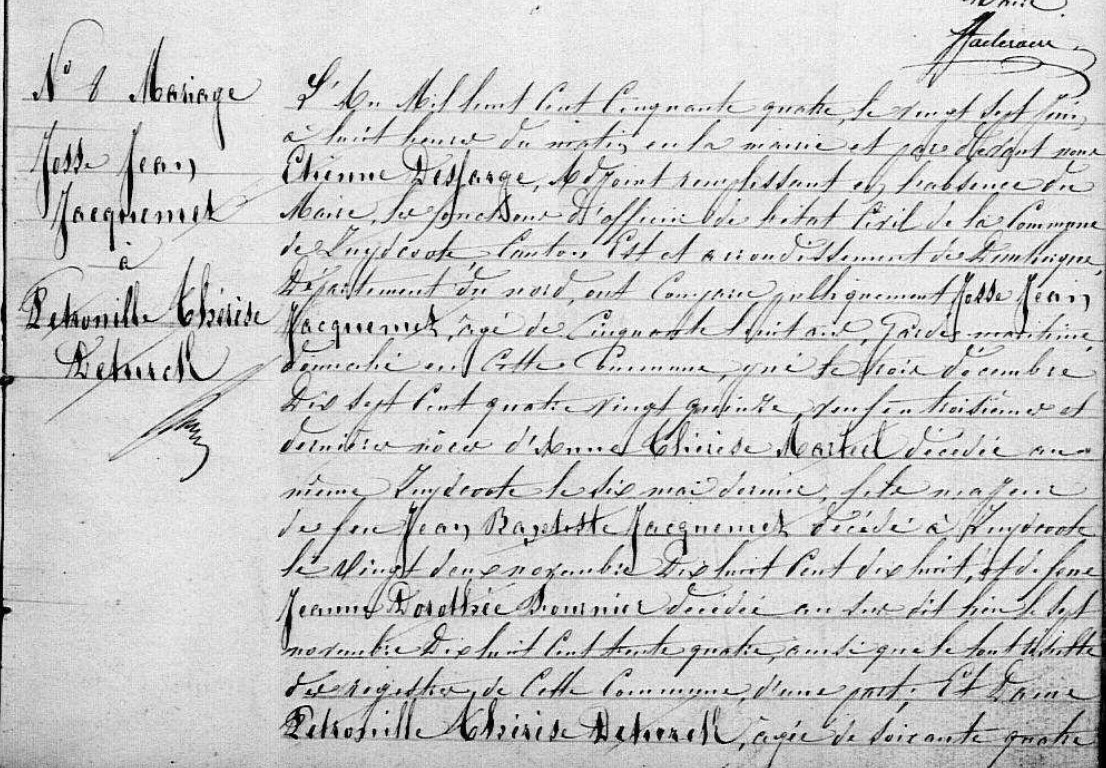 Maire
N° 8 Mariage
Josse Jean
Jacquemet
à
Petronille Thérise
Deturck
L'An Mil huit Cent Cinquante quatre, le vingt sept Juin,
à huit heures du matin, en la mairie et par devant nous
Etienne Desfarge, Adjoint remplissant en l'absence du
Maire, les fonctions d'officier de l'état Civil de la Commune
de Zuydcoote Canton Est et arrondissement de Dunkerque,
Département du nord, ont Comparu publiquement Josse Jean
Jacquemet, âgé de Cinquante huit ans, Garde maritime
domicilié en Cette Commune, y né le trois décembre
Dix sept Cent quatre vingt quinze, veuf en troisièmes et
dernières nôces d'Anne Thérise Marteel décédée au
même Zuydcoote le six mai dernier, fils majeur
de feu Jean Baptiste Jacquemet décédé à Zuydcoote
le vingt deux novembre Dix huit Cent dix huit, et de feue
Jeanne Dorothée Fournier décédée au sus dit lieu le sept
novembre Dix huit Cent trente quatre, ainsi que le tout résulte
des registres de Cette Commune, d'une part; Et Dame
Petronille Thérise Deturck, âgée de soixante quatre